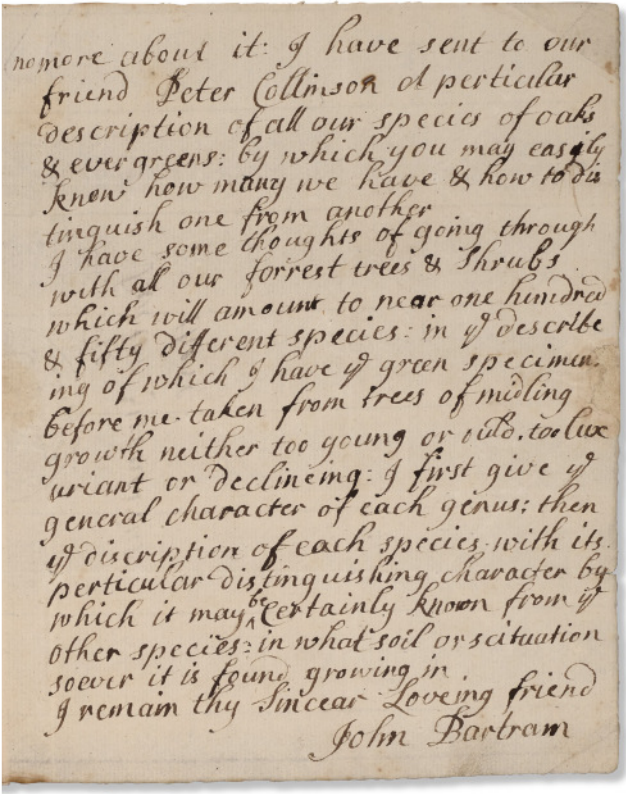 no more about it: I have sent to our
friend Peter Collinson a perticular
description of all our species of oaks
& evergreens: by which you may easily
know how many we have & how to dis
tinguish one from another
I have some thoughts of going through
with all our forrest trees & shrubs
which will amount to near one hundred
& fifty different species: in ye describe
ing of which I have ye green specimen.
before me. taken from trees of midling
growth neither too young or ould. too lux
uriant or declineing: I first give ye
general character of each genus: then
ye discription of each species with its
perticular distinguishing character by
which it may be certainly known from ye
other species: in what soil or scituation
soever it is found growing in
I remain thy Sincear Loveing friend
John Bartram